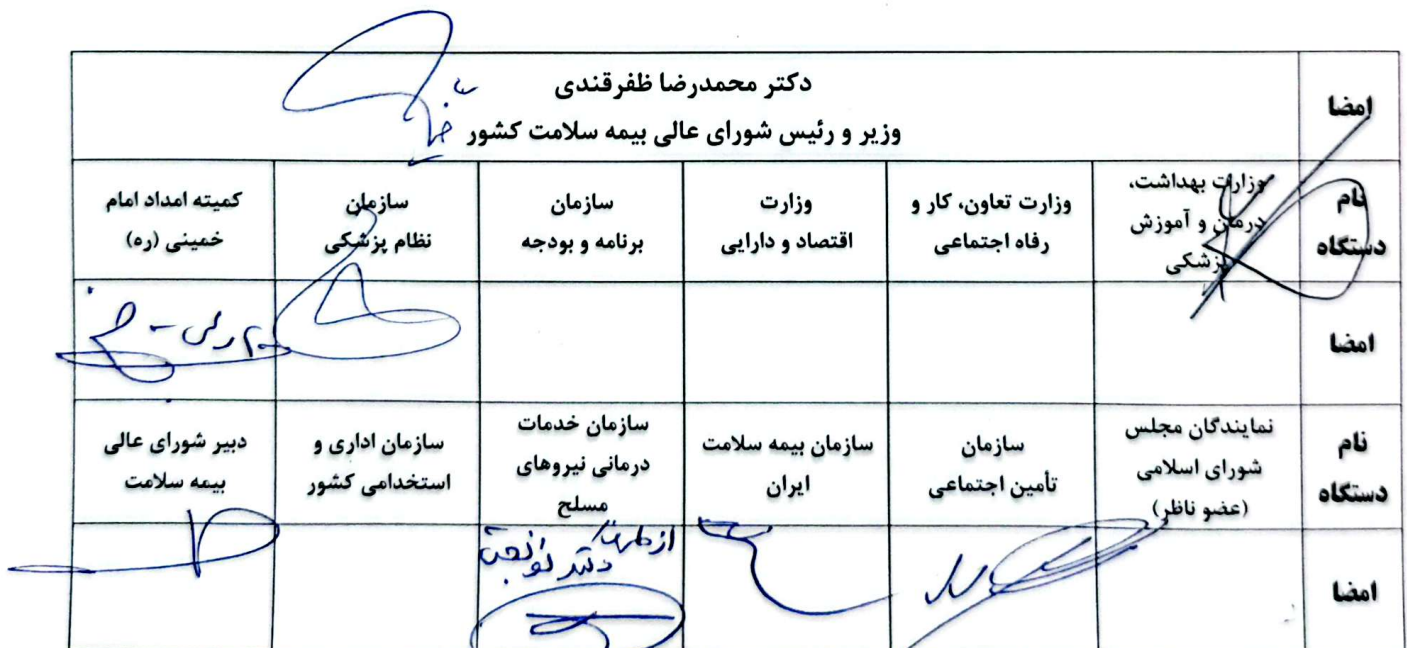 امضا
دکتر محمدرضا ظفرقندی
وزیر و رئیس شورای عالی بیمه سلامت کشور
نام
دستگاه
وزارت بهداشت،
درمان و آموزش
پزشکی
وزارت تعاون، کار و
رفاه اجتماعی
وزارت
اقتصاد و دارایی
سازمان
برنامه و بودجه
سازمان
نظام پزشکی
کمیته امداد امام
خمینی (ره)
امضا
نام
دستگاه
نمایندگان مجلس
شورای اسلامی
(عضو ناظر)
سازمان
تأمین اجتماعی
سازمان بیمه سلامت
ایران
سازمان خدمات
درمانی نیروهای
مسلح
سازمان اداری و
استخدامی کشور
دبیر شورای عالی
بیمه سلامت
امضا
از طرف
دکتر